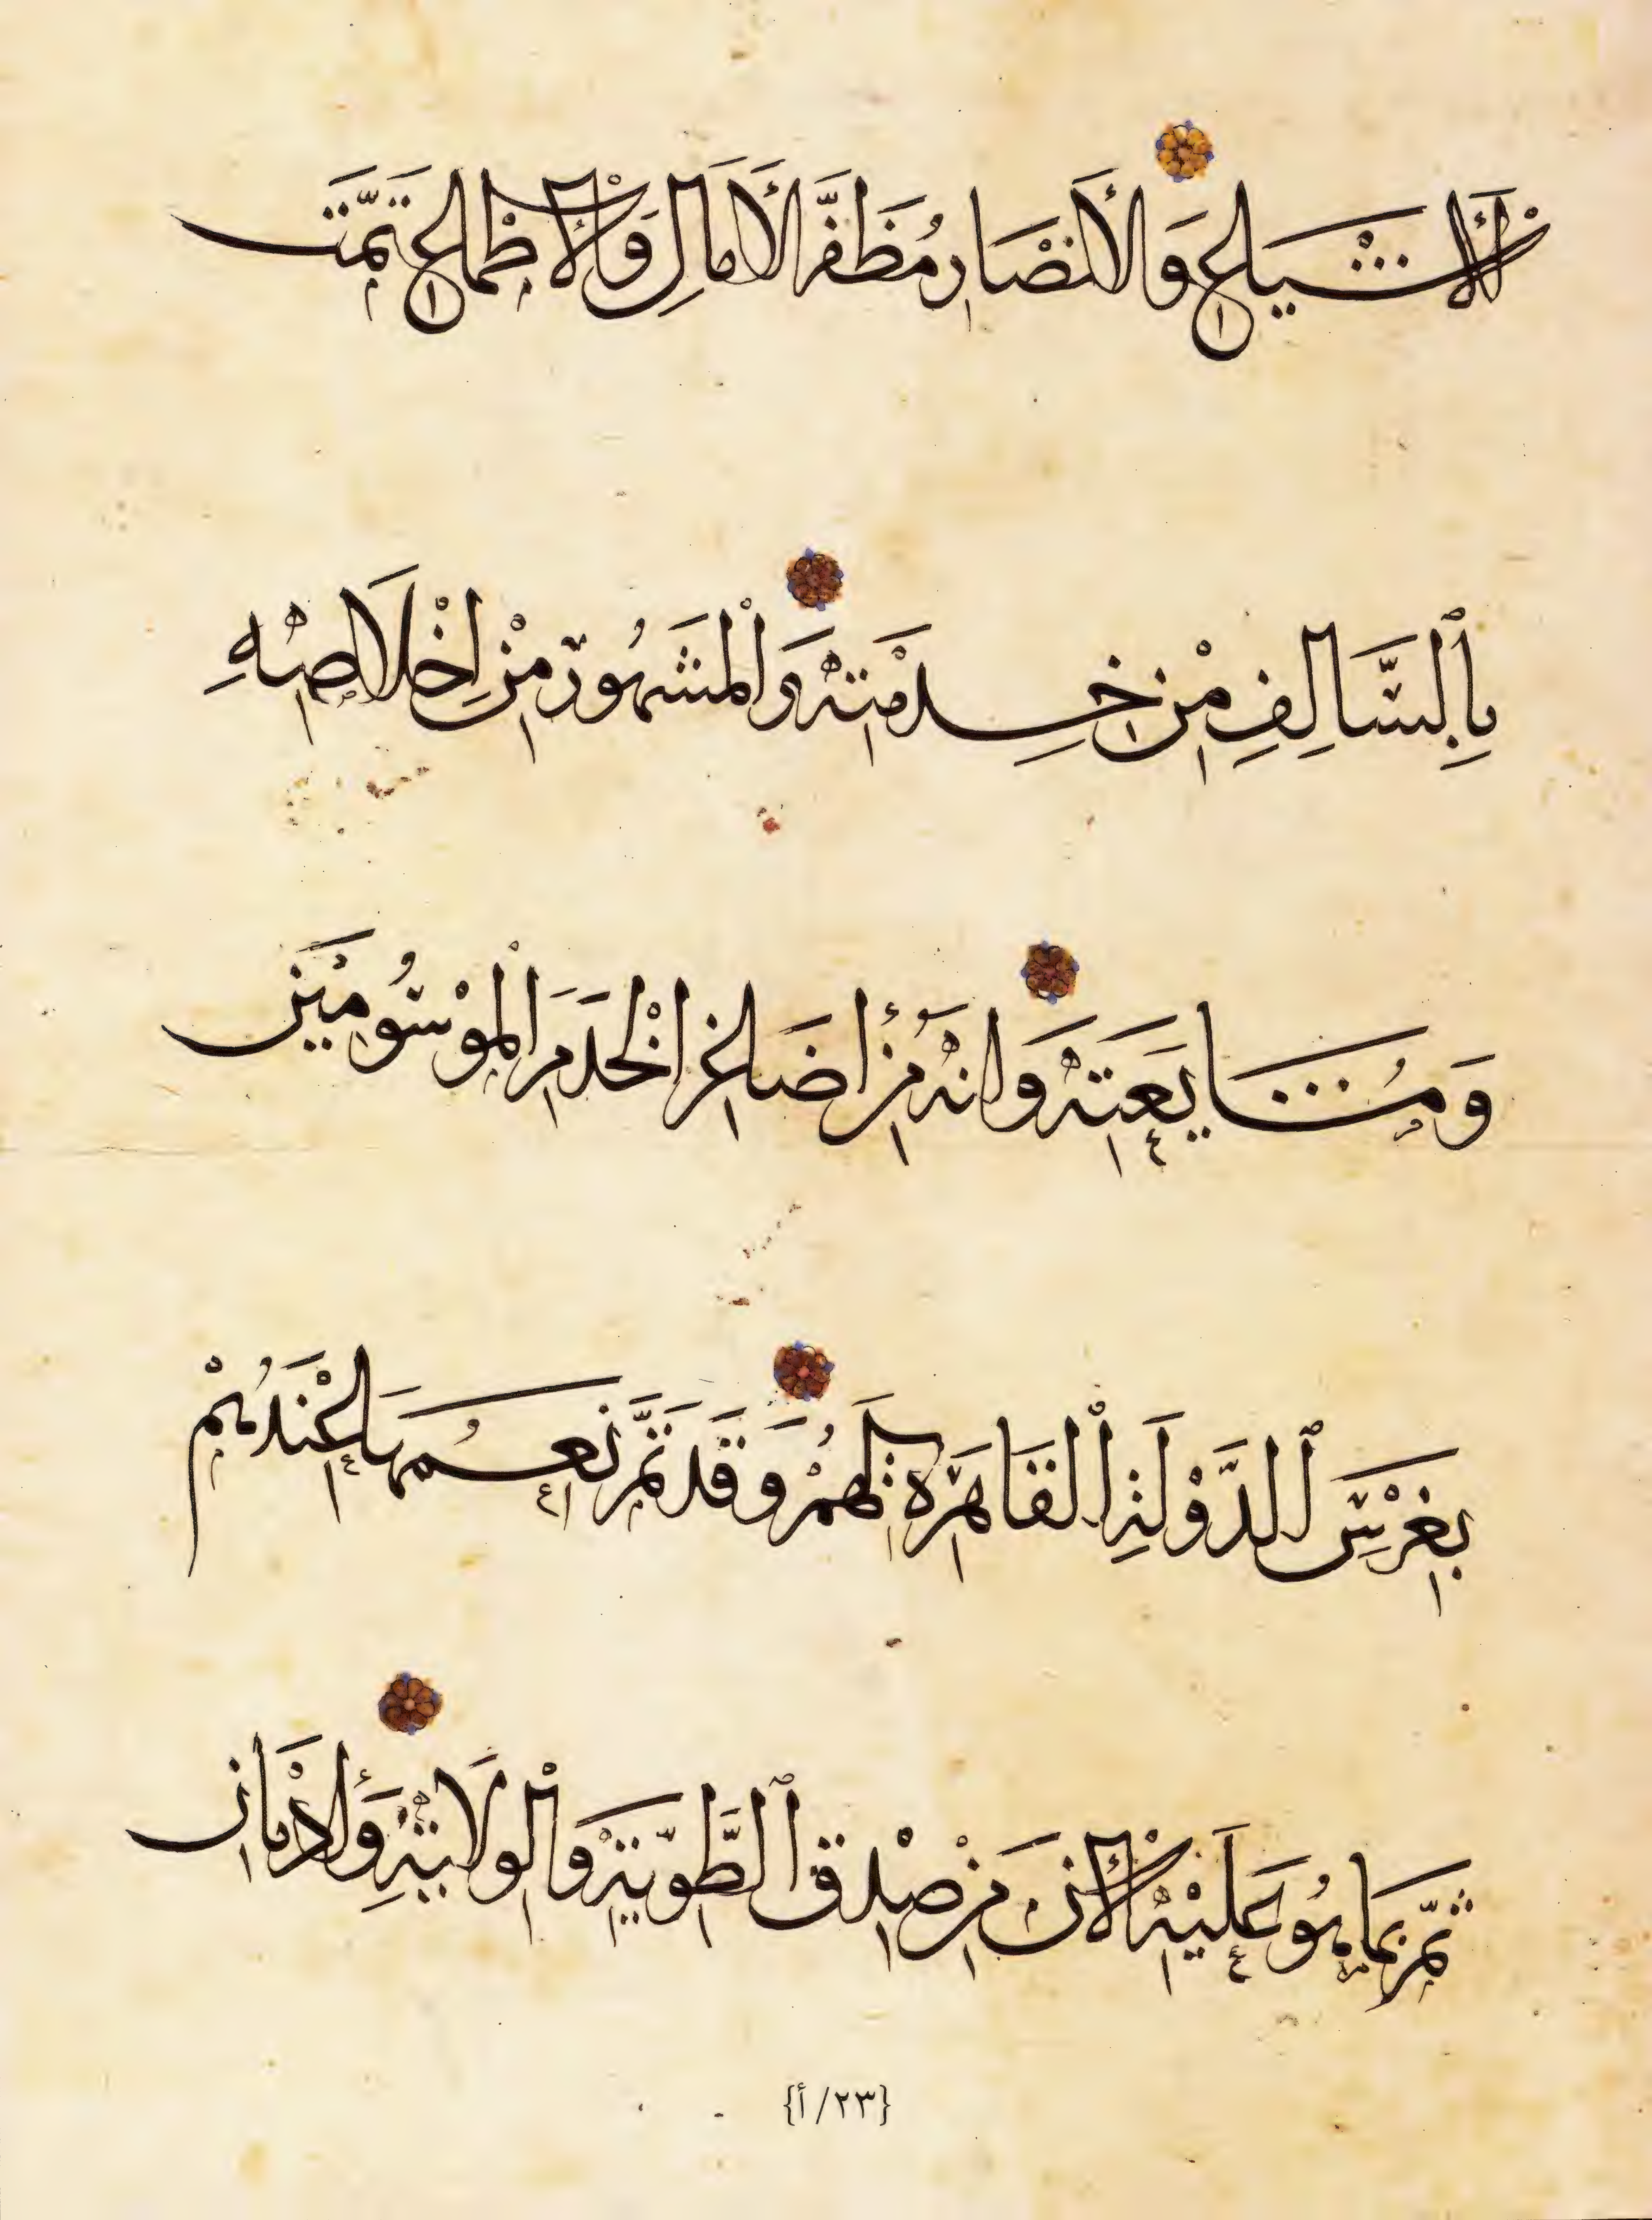 الأَشْيَاعِ وَالأَنْصَارِ مُظَفَّرَ الأَمَالِ وَالأَطْمَاعِ تَمُتُّ
بِٱلسَّالِفِ مِنْ خِدْمَتِهِ وَالْمَشْهُورِ مِنْ إِخْلَاصِهِ
وَمُشَايَعَتِهِ وَأَنَّهُ مِنْ أَصَاغِرِ الْخَدَمِ الْمَوْسُومِينَ
بِغَرْسِ ٱلدَّوْلَةِ الْقَاهِرَةِ لَهُمْ وَقَدْ تَمَّ نِعَمُهَا عِنْدَهُمْ
ثُمَّ بِمَا هُوَ عَلَيْهِ الْآنَ مِنْ صِدْقِ ٱلطَّوِيَّةِ وَالْوِلَايَةِ وَإِدْمَانِ
{٢٣/أ}